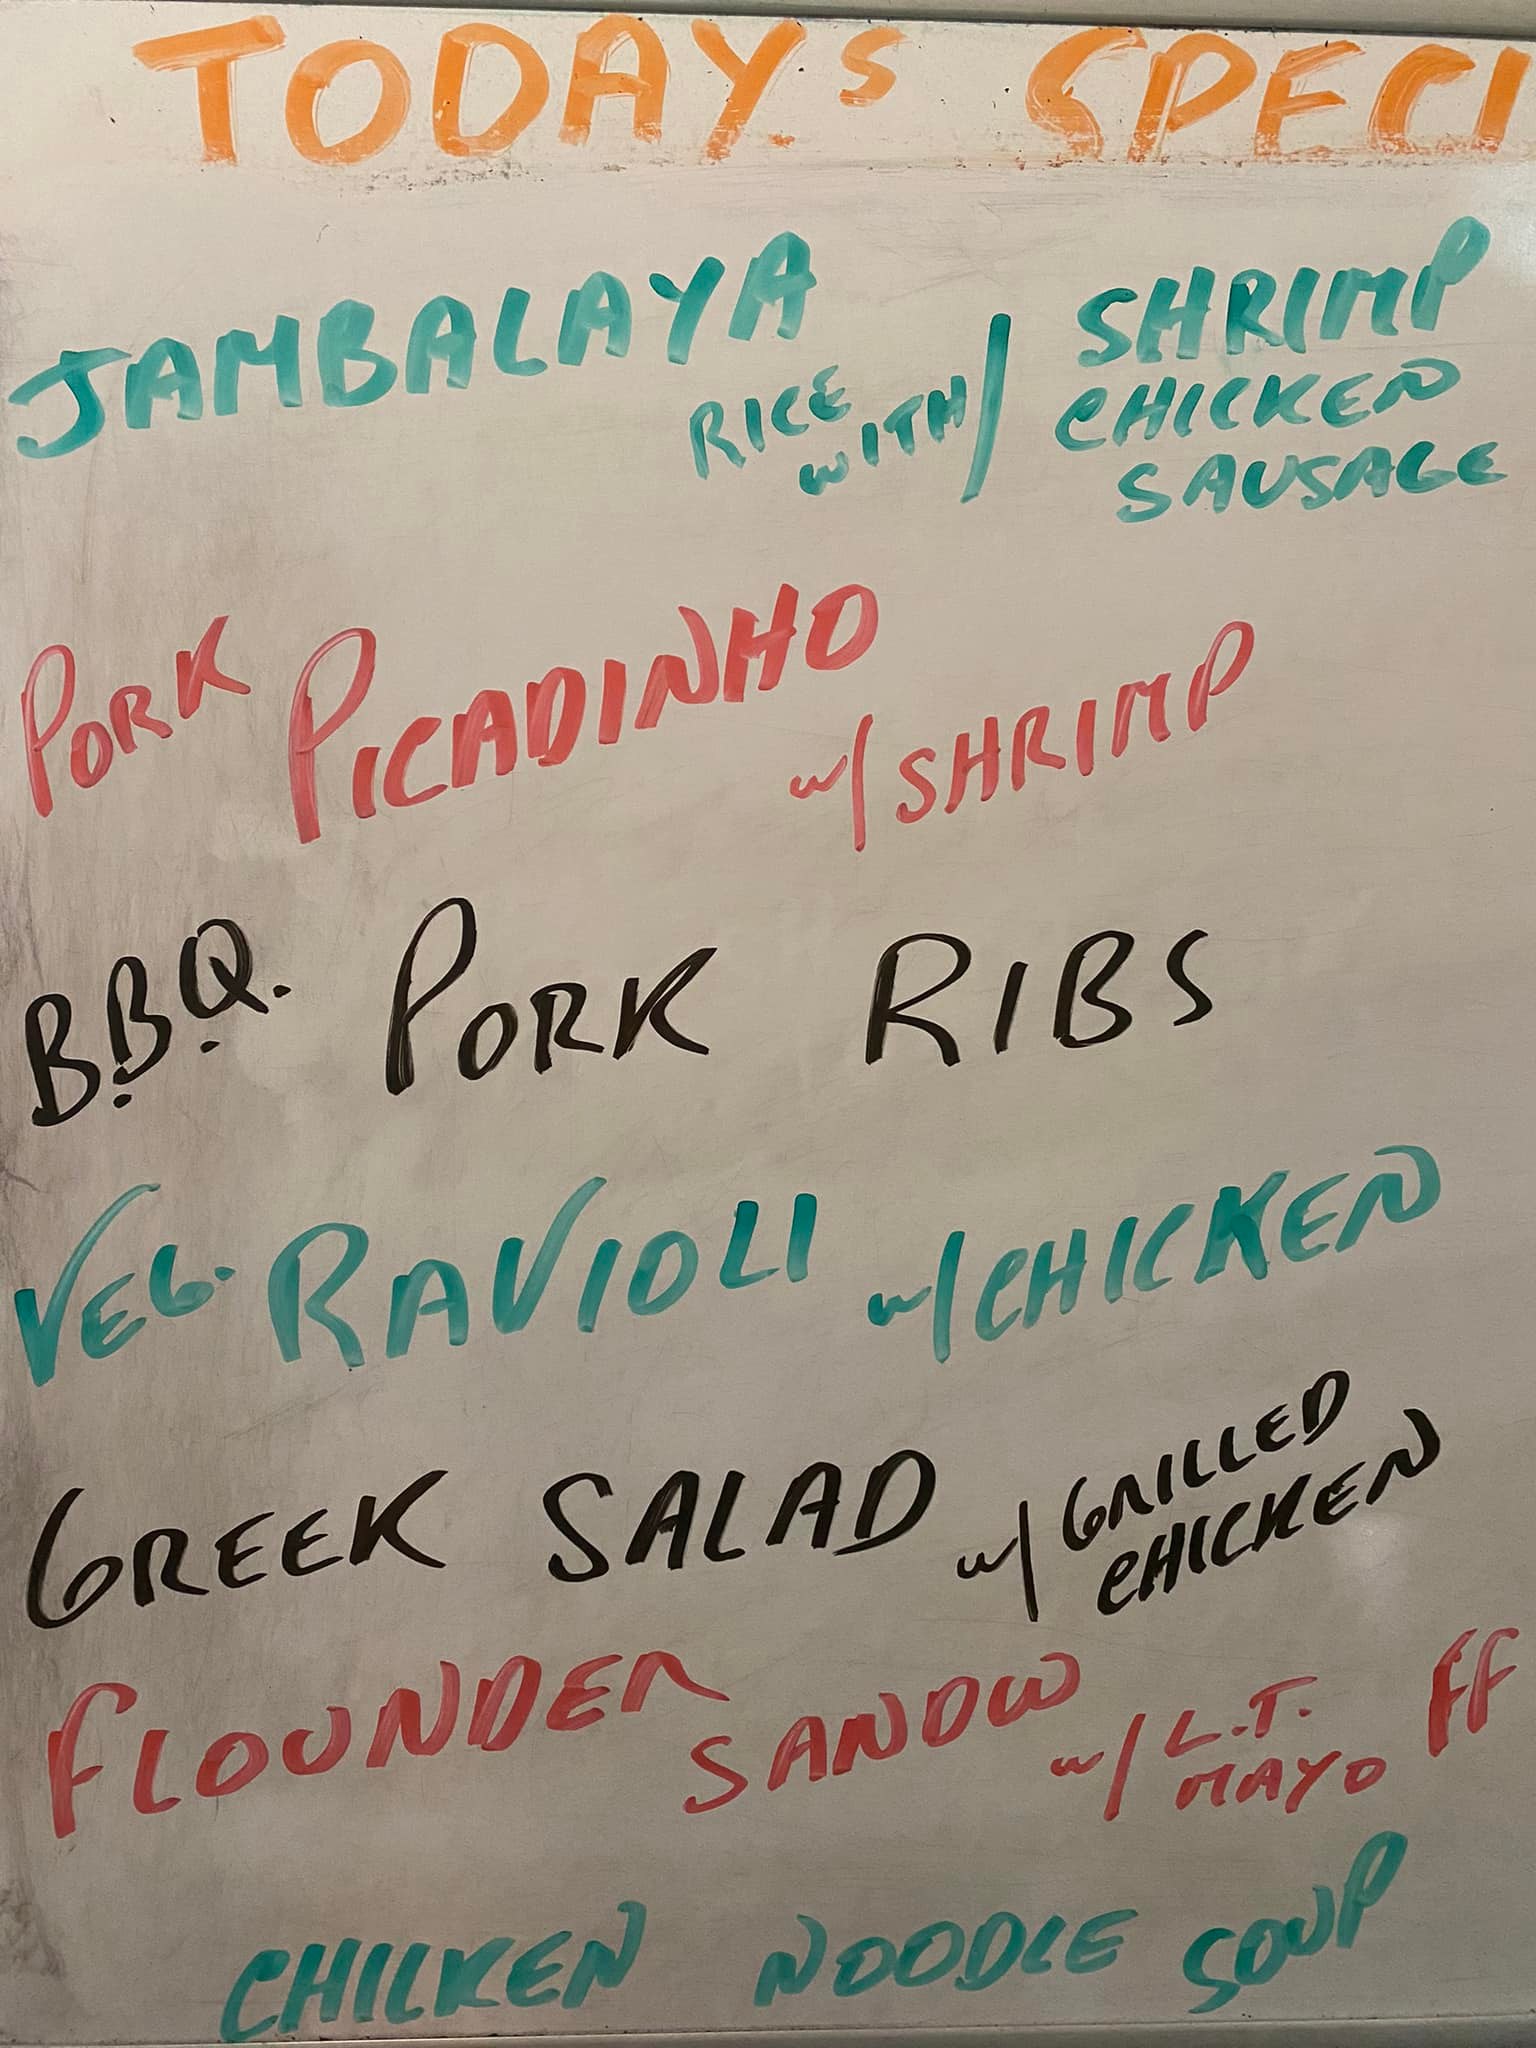 TODAYs SPECI
JAMBALAYA RICE WITH/ SHRIMP
CHICKEN
SAUSAGE
PORK PICADINHO w/ SHRIMP
B.B.Q. PORK RIBS
VEG. RAVIOLI w/ CHICKEN
GREEK SALAD w/ GRILLED
CHICKEN
FLOUNDER SANDW w/ L.T. FF
MAYO
CHICKEN NOODLE SOUP